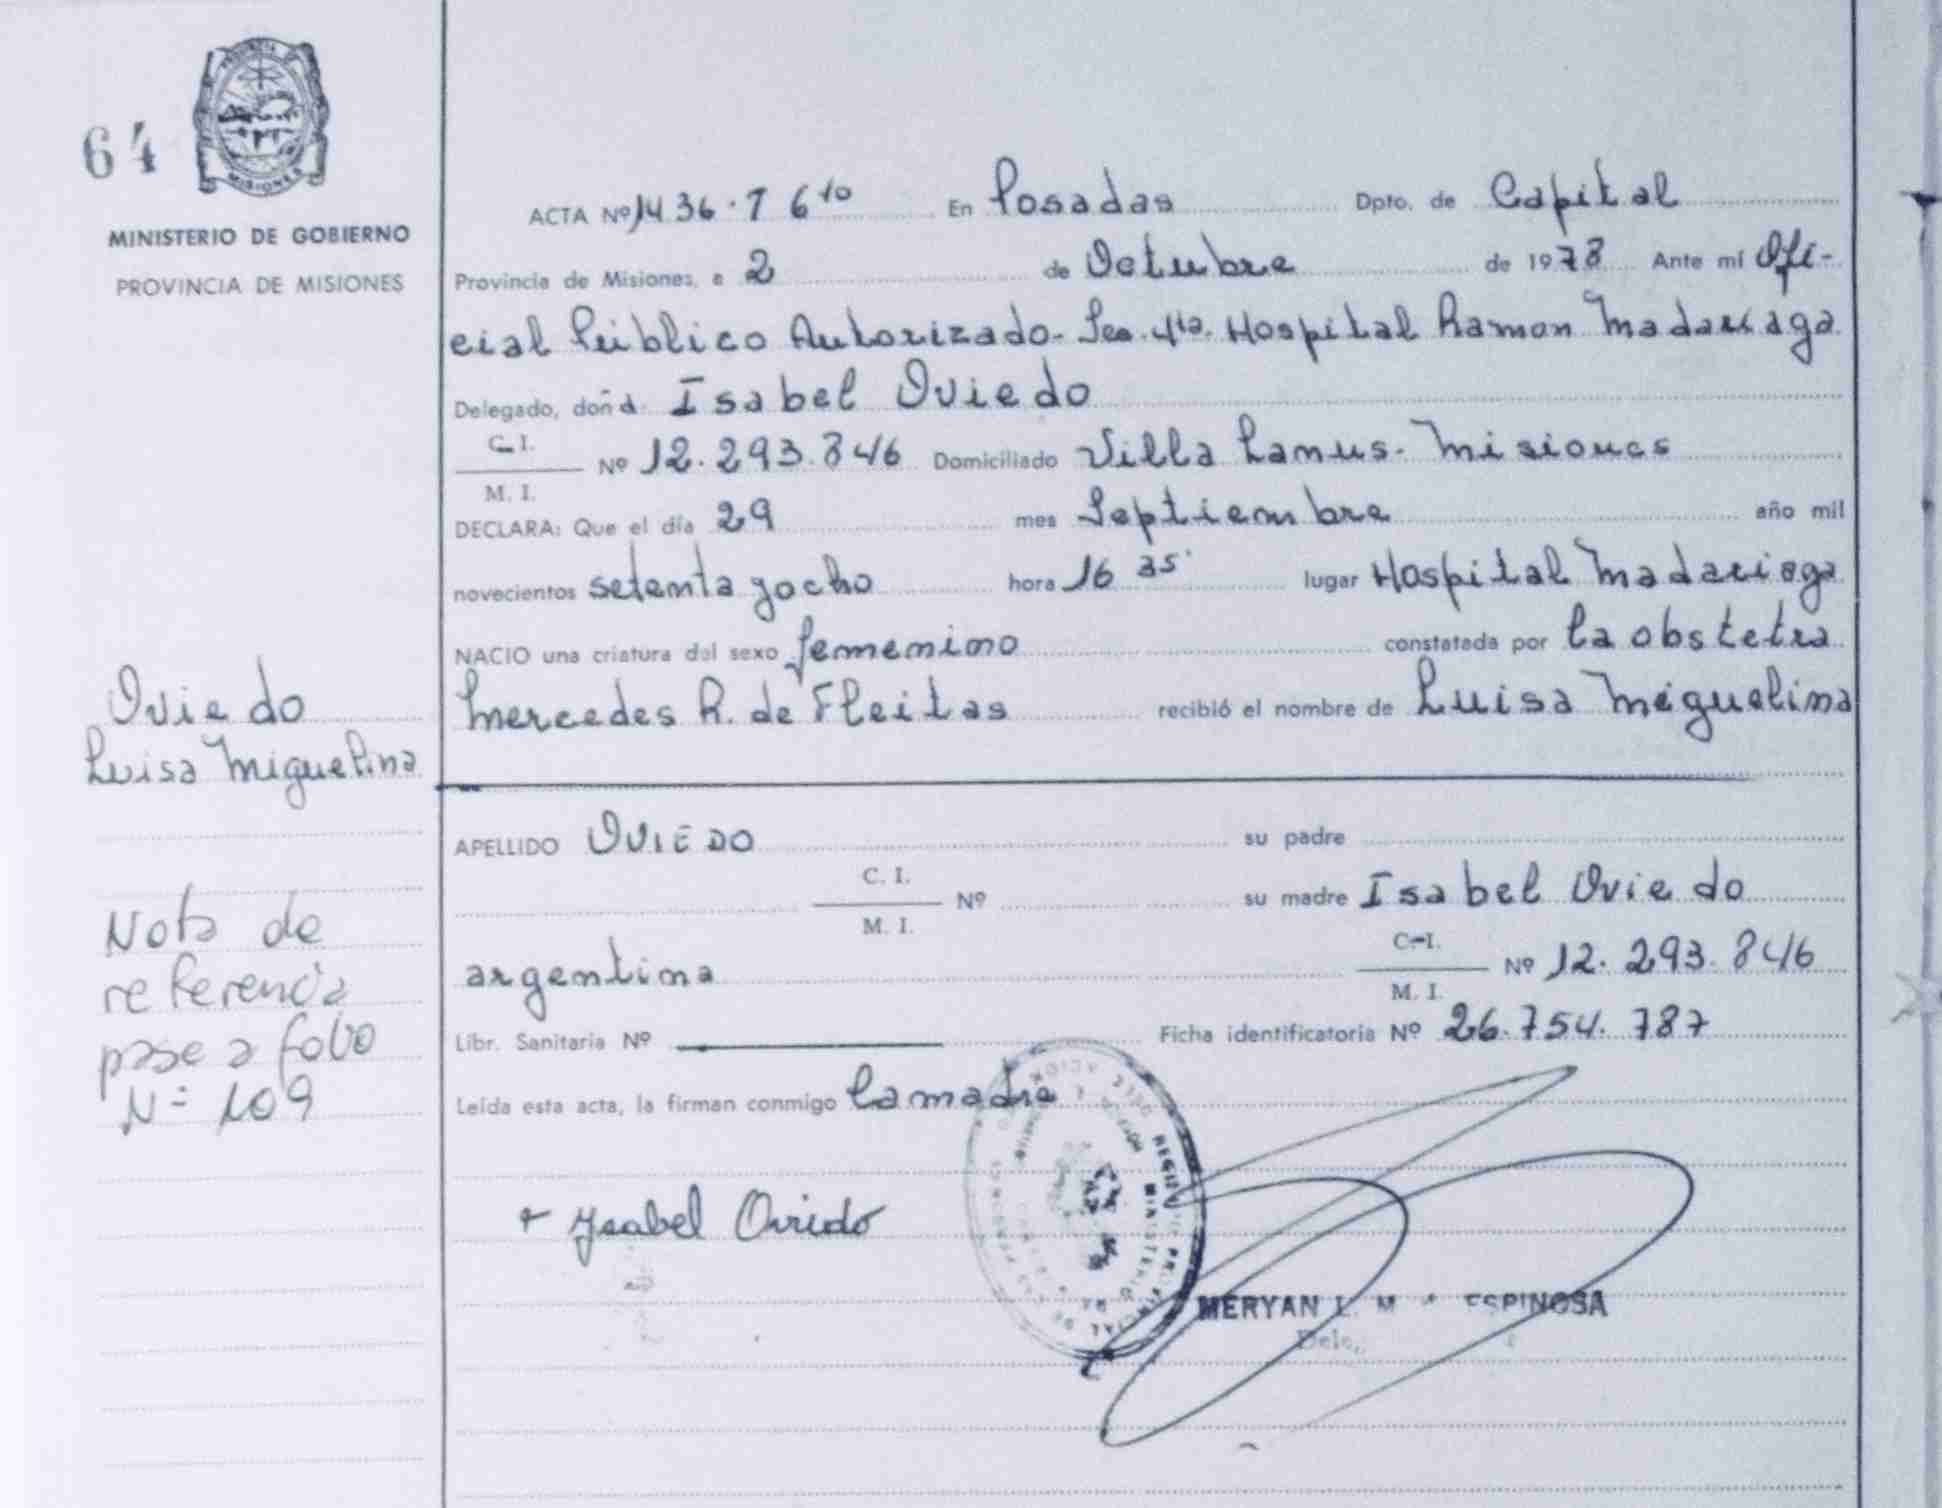 64
MISIONES
MINISTERIO DE GOBIERNO
PROVINCIA DE MISIONES
ACTA Nº 1436. T 6to En Posadas Dpto. de Capital
Provincia de Misiones, a 2 de Octubre de 1978 Ante mí Ofi-
cial Público Autorizado- Sec. 4ta. Hospital Ramon Madariaga
Delegado, doña Isabel Oviedo
C. I.
Nº 12.293.846 Domiciliado Villa Lanus- Misiones
M. I.
DECLARA: Que el día 29 mes Septiembre año mil
novecientos setenta y ocho hora 16 35' lugar Hospital Madariaga
NACIO una criatura del sexo femenino constatada por la obstetra
Mercedes R. de Fleitas recibió el nombre de Luisa Miguelina
Oviedo
Luisa Miguelina
APELLIDO OVIEDO su padre
C. I.
Nº su madre Isabel Oviedo
M. I.
argentina C. I. Nº 12.293.846
M. I.
Libr. Sanitaria Nº Ficha identificatoria Nº 26.754.787
Leída esta acta, la firman conmigo la madre
Nota de
referencia
pase a folio
N= 109
Ysabel Oviedo
MERYAN L. ESPINOSA